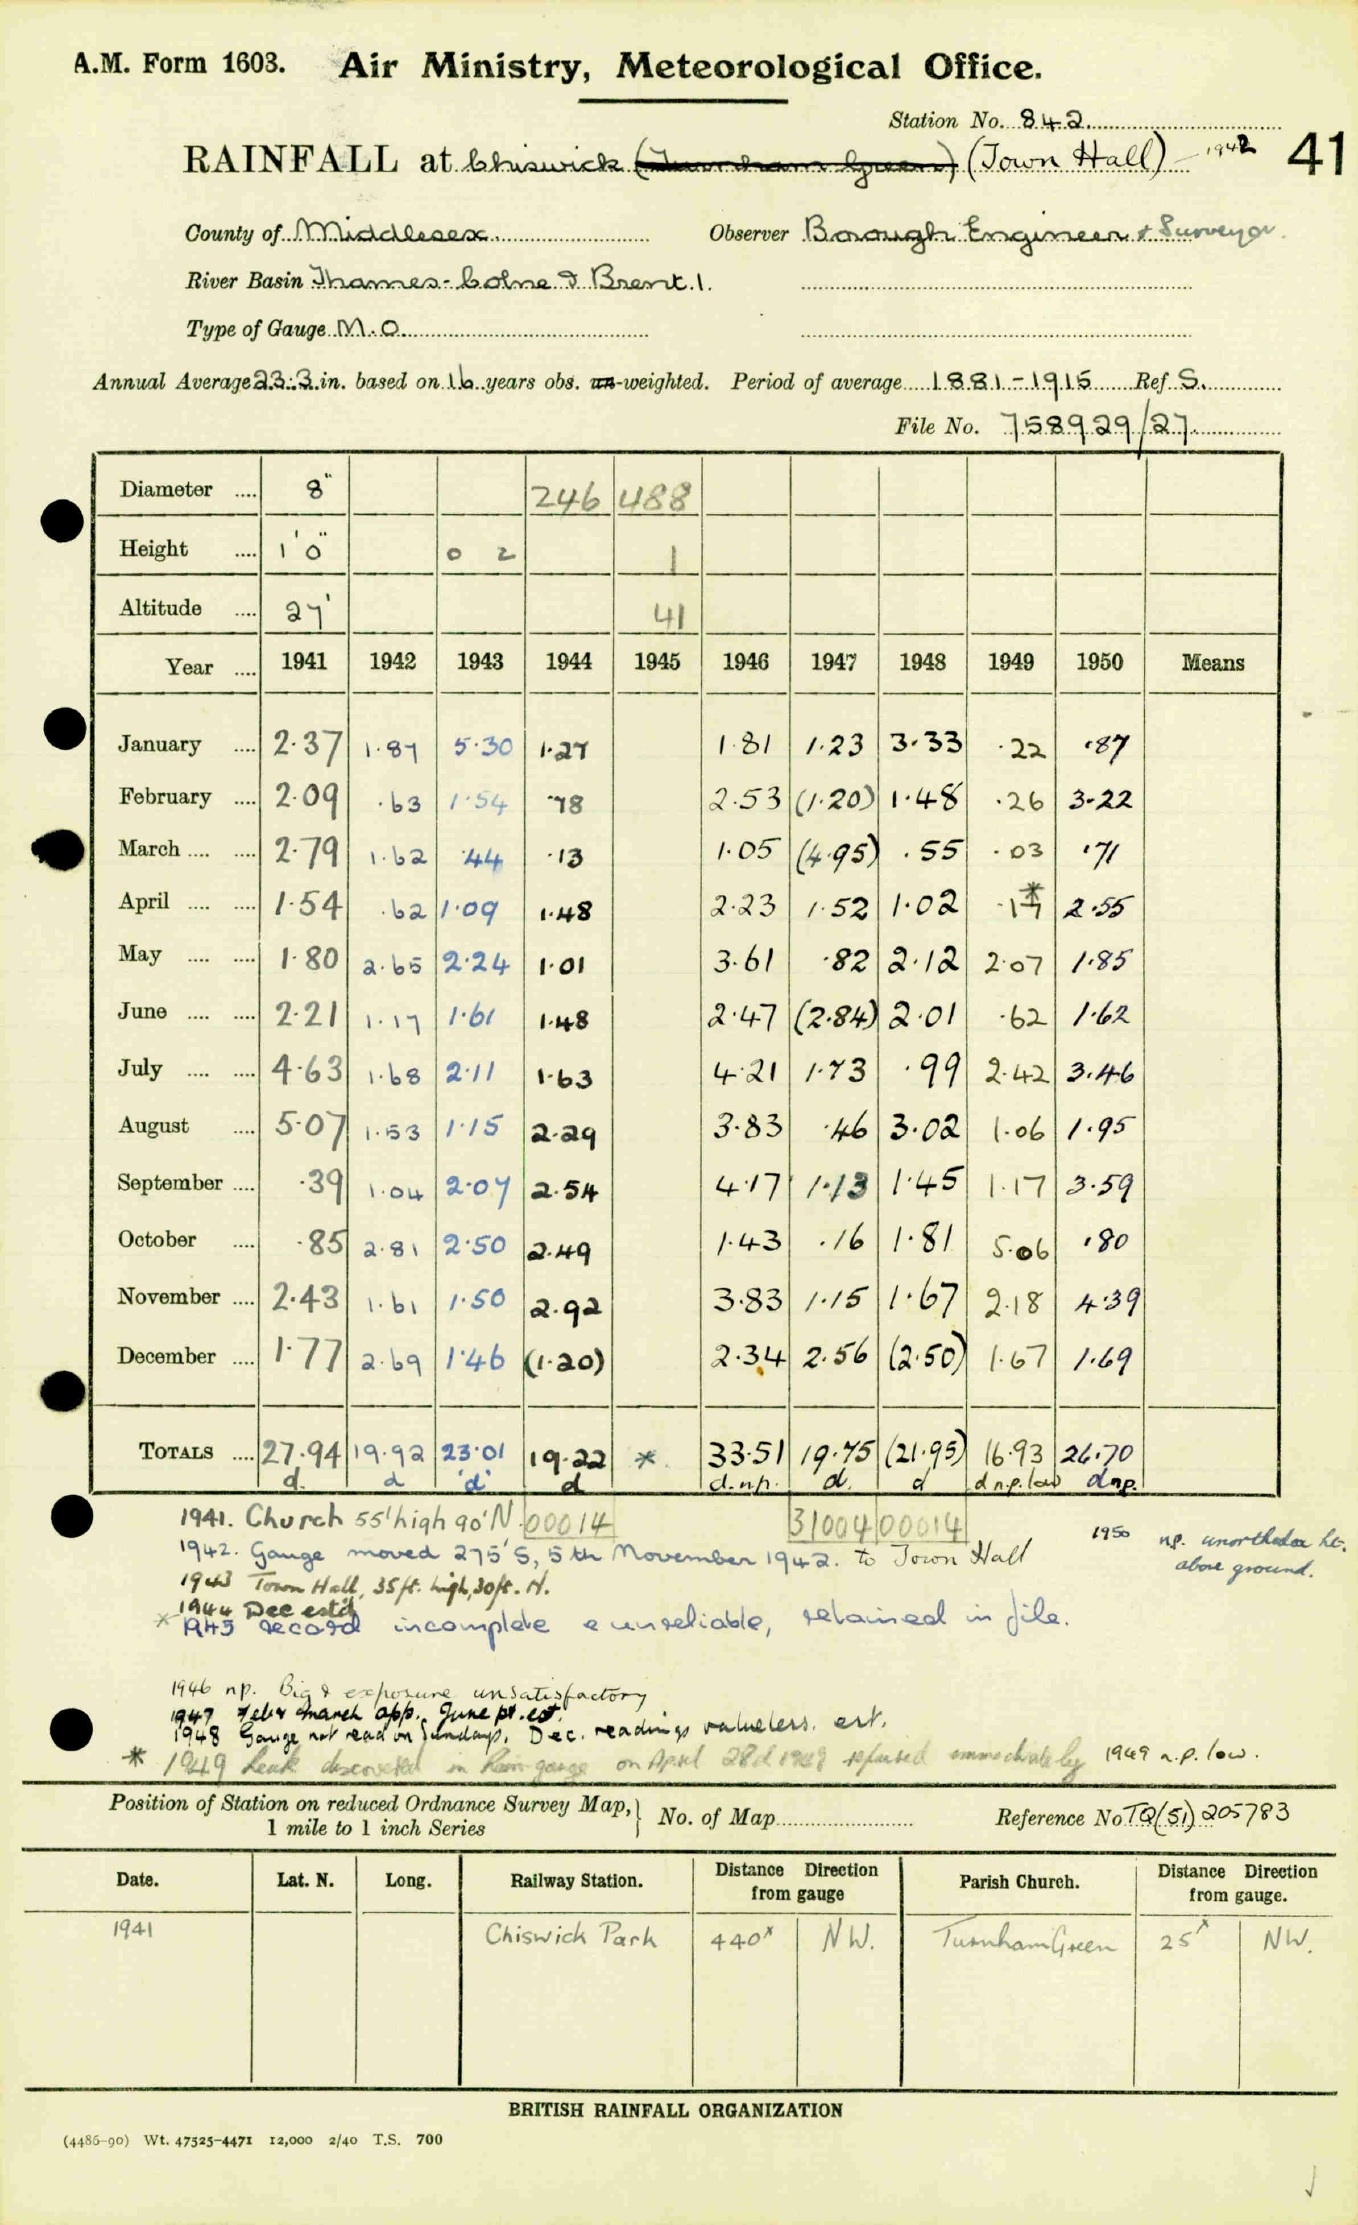 A.M. Form 1603. Air Ministry, Meteorological Office.
Station No. 842
RAINFALL at Chiswick (Turnham Green) (Town Hall) – 1942 41
County of Middlesex Observer Borough Engineer & Surveyor.
River Basin Thames - Colne & Brent. 1.
Type of Gauge M.O.
Annual Average 23.3 in. based on 16 years obs. un-weighted. Period of average 1881-1915 Ref S.
File No. 758929/27
Diameter .... 8" 246 488
Height .... 1'0" 0 2 1
Altitude .... 27' 41
Year .... 1941 1942 1943 1944 1945 1946 1947 1948 1949 1950 Means
January .... 2.37 1.87 5.30 1.27 1.81 1.23 3.33 .22 .87
February .... 2.09 .63 1.54 .78 2.53 (1.20) 1.48 .26 3.22
March .... .... 2.79 1.62 .44 .13 1.05 (4.95) .55 .03 .71
April .... .... 1.54 .62 1.09 1.48 2.23 1.52 1.02 .17* 2.55
May .... .... 1.80 2.65 2.24 1.01 3.61 .82 2.12 2.07 1.85
June .... .... 2.21 1.17 1.61 1.48 2.47 (2.84) 2.01 .62 1.62
July .... .... 4.63 1.68 2.11 1.63 4.21 1.73 .99 2.42 3.46
August .... 5.07 1.53 1.15 2.29 3.83 .46 3.02 1.06 1.95
September .... .39 1.04 2.07 2.54 4.17 1.13 1.45 1.17 3.59
October .... .85 2.81 2.50 2.49 1.43 .16 1.81 5.06 .80
November .... 2.43 1.61 1.50 2.92 3.83 1.15 1.67 2.18 4.39
December .... 1.77 2.69 1.46 (1.20) 2.34 2.56 (2.50) 1.67 1.69
TOTALS .... 27.94 19.92 23.01 19.22 * 33.51 19.75 (21.95) 16.93 26.70
d. d 'd' d d.n.p. d. d d n.p. low d n.p.
1941. Church 55' high 90' N. 00014 31004 00014
1942. Gauge moved 275' S, 5th November 1942. to Town Hall
1950 np. unorthodox ht. above ground.
1943 Town Hall, 35ft. high, 30ft. N.
1944 Dec est'd
* 1945 record incomplete & unreliable, retained in file.
1946 n.p. exposure unsatisfactory
1947 Feb & March app. June pt. est.
1948 Gauge not read on Sundays. Dec. readings valueless. est.
* 1949 Leak discovered in Rain gauge on April 28th 1949 repaired immediately 1949 n.p. low.
Position of Station on reduced Ordnance Survey Map, 1 mile to 1 inch Series } No. of Map Reference No TQ(51) 205783
Date. Lat. N. Long. Railway Station. Distance Direction from gauge Parish Church. Distance Direction from gauge.
1941 Chiswick Park 440x NW. Turnham Green 25x NW.
BRITISH RAINFALL ORGANIZATION
(4486-90) Wt. 47525-4471 12,000 2/40 T.S. 700